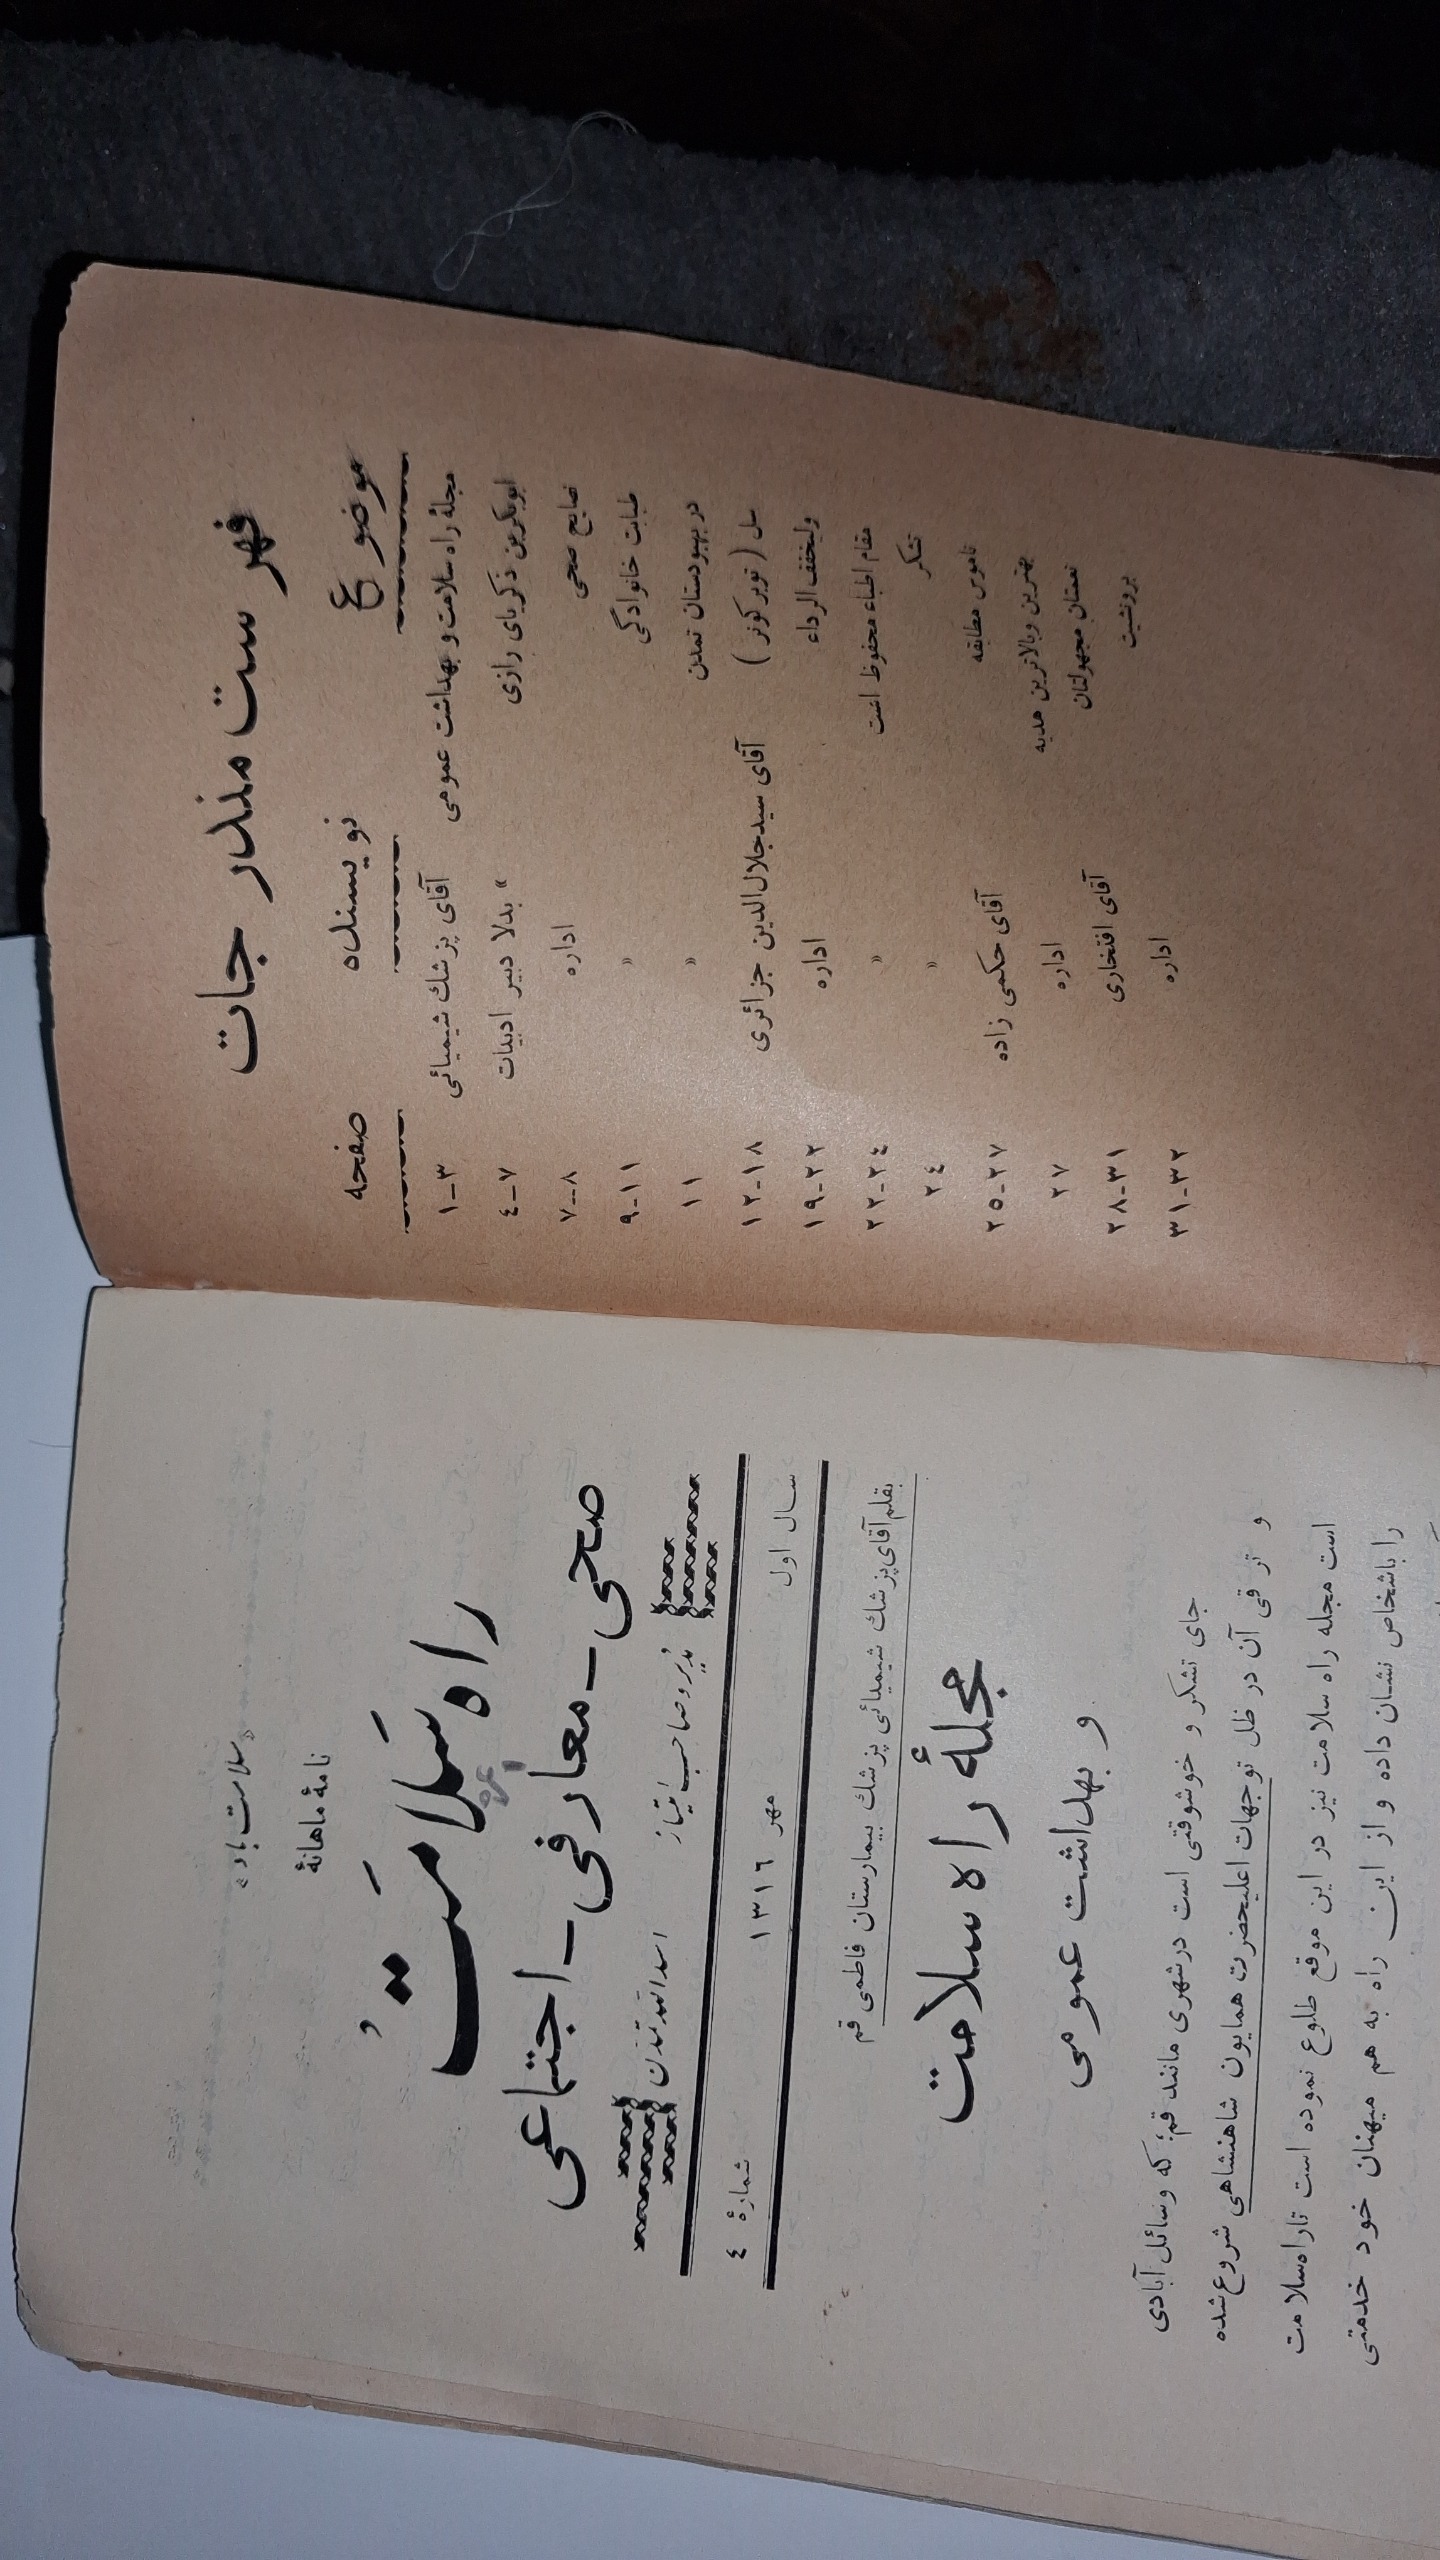 فهرست مندرجات
موضوع نویسنده صفحه
مجلهٔ راه سلامت و بهداشت عمومی آقای پزشك شیمیائی ۱-۳
ابوبکر بن ذکریای رازی » بدلا دبیر ادبیات ٤-۷
نصایح صحی اداره ۷-۸
طبابت خانوادگی » ۹-۱۱
در بهبودستان تمدن » ۱۱
سل ( توبرکولز ) آقای سیدجلال‌الدین جزائری ۱۲-۱۸
ولیخفف الرداء اداره ۱۹-۲۲
مقام اطباء محفوظ است » ۲۲-۲٤
تشکر » ۲٤
ناموس مطابقه آقای حکمی زاده ۲۵-۲۷
بهترین و بالاترین هدیه اداره ۲۷
نعمتان مجهولتان آقای افتخاری ۲۸-۳۱
برونشیت اداره ۳۱-۳۲
«سلامت باد»
نامهٔ ماهانهٔ
راه سلامت
صحی - معارفی - اجتماعی
مدیر و صاحب امتیاز اسدالله تمدن
سال اول مهر ۱۳۱٦ شمارهٔ ٤
بقلم آقای پزشك شیمیائی پزشك بیمارستان فاطمی قم
مجلهٔ راه سلامت
و بهداشت عمومی
جای تشکر و خوشوقتی است در شهری مانند قم؛ که وسائل آبادی
و ترقی آن در ظل توجهات اعلیحضرت همایون شاهنشاهی شروع شده
است مجله راه سلامت نیز در این موقع طلوع نموده است تا راه سلامت
را باشخاص نشان داده و از این راه به هم میهنان خود خدمتی